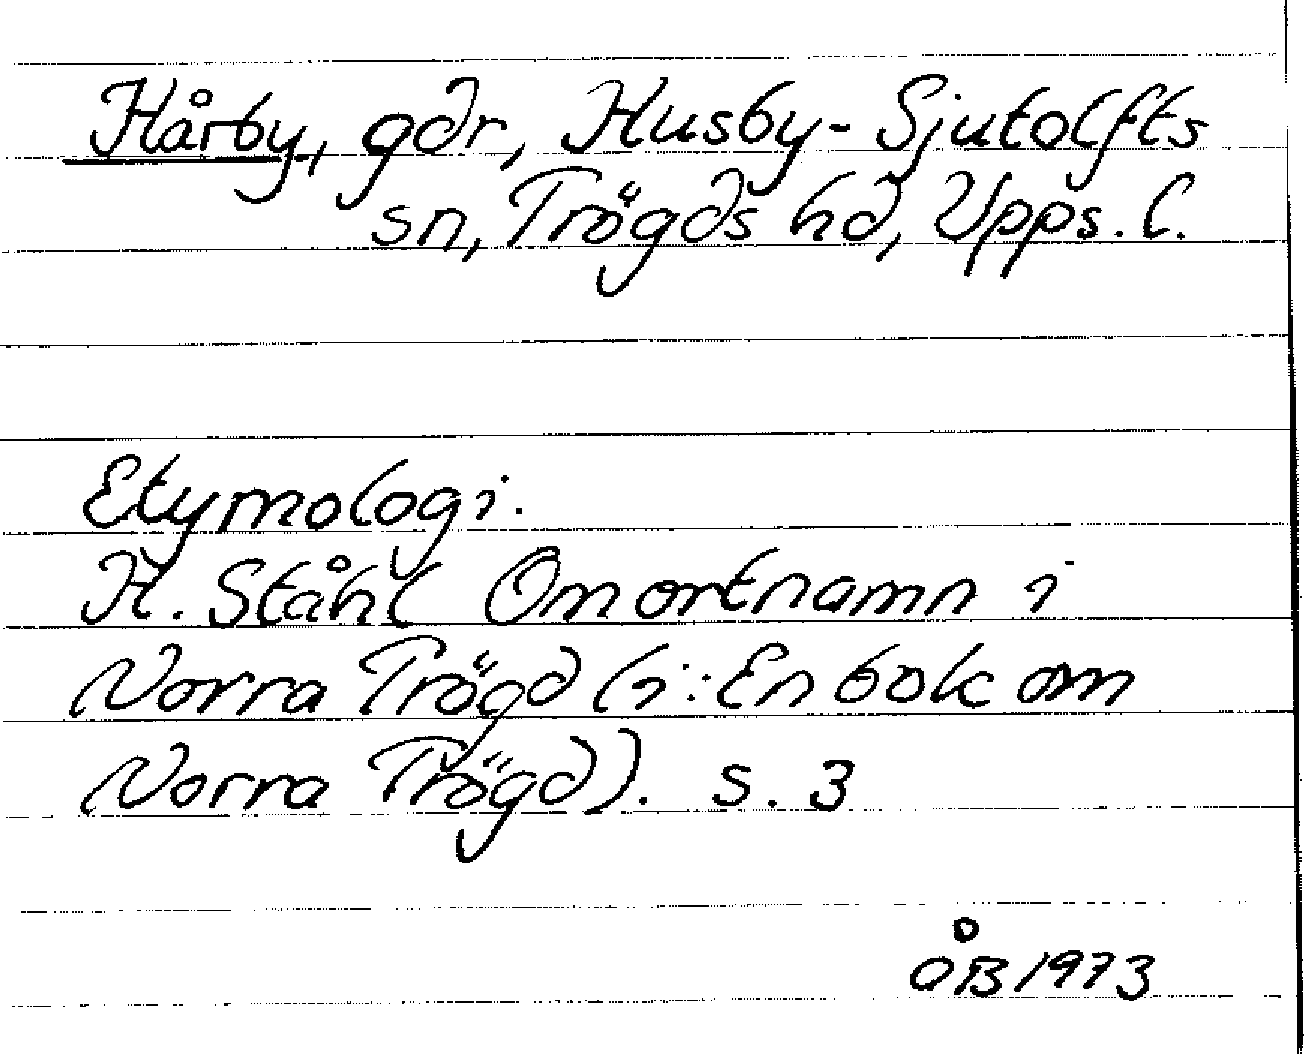 Hårby, gdr, Husby-Sjutolfts
sn, Trögds hd, Upps. l.
Etymologi.
H. Ståhl Om ortnamn i
Norra Trögd (i: En bok om
Norra Trögd). s. 3
ÅB 1973